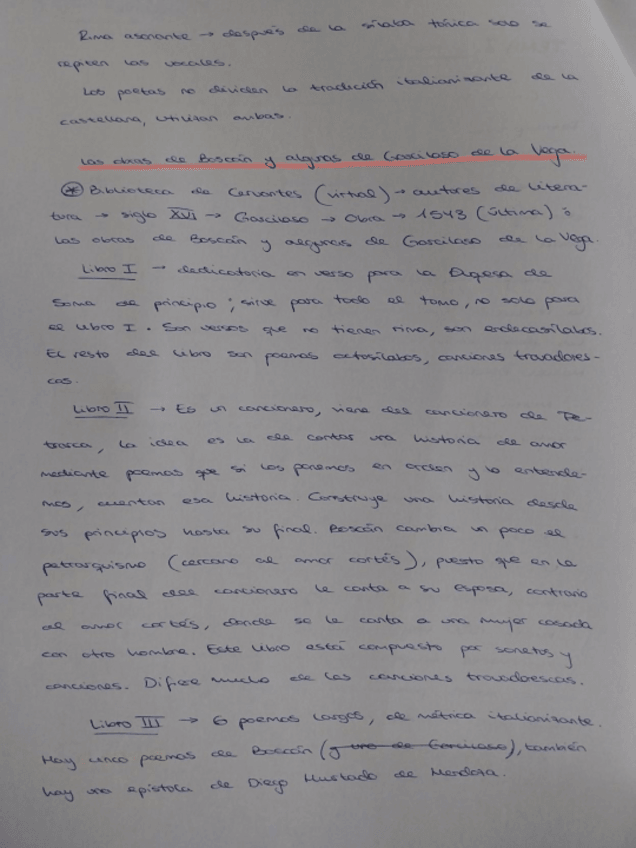 Rima asonante → después de la sílaba tónica solo se
repiten las vocales.
Los poetas no dividen la tradición italianizante de la
castellana, utilizan ambas.
Las obras de Boscán y algunas de Garcilaso de la Vega.
* Biblioteca de Cervantes (virtual) → autores de litera-
tura → siglo XVI → Garcilaso → Obra → 1543 (última) ó
Las obras de Boscán y algunas de Garcilaso de la Vega.
Libro I → dedicatoria en verso para la Duqesa de
Soma de principio; sirve para todo el tomo, no solo para
el libro I. Son versos que no tienen rima, son endecasílabos.
El resto del libro son poemas octosílabos, canciones trovadores-
cas.
Libro II → Es un cancionero, viene del cancionero de Pe-
trarca, la idea es la de contar una historia de amor
mediante poemas que si los ponemos en orden y lo entende-
mos, cuentan esa historia. Construye una historia desde
sus principios hasta su final. Boscán cambia un poco el
petrarquismo (cercano al amor cortés), puesto que en la
parte final del cancionero le canta a su esposa, contrario
al amor cortés, donde se le canta a una mujer casada
con otro hombre. Este libro está compuesto por sonetos y
canciones. Difiere mucho de las canciones trovadorescas.
Libro III → 6 poemas largos, de métrica italianizante.
Hay cinco poemas de Boscán (y uno de Garcilaso), también
hay una epístola de Diego Hurtado de Mendoza.